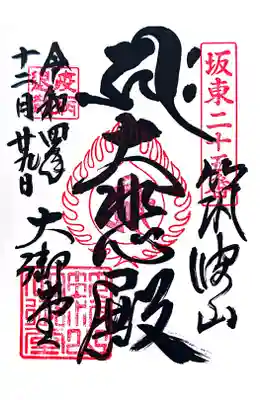 坂東二十五
筑波山
大悲殿
大御堂
令和四年
十二月廿九日